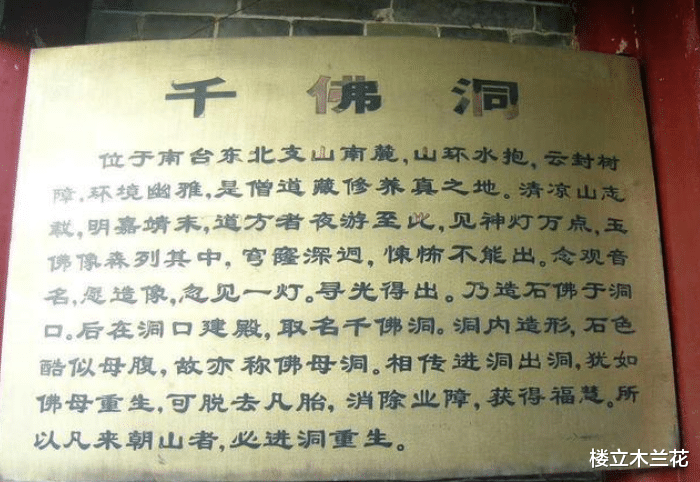 千佛洞
位于南台东北支山南麓，山环水抱，云封树
障，环境幽雅，是僧道藏修养真之地。清凉山志
载，明嘉靖末，道方者夜游至此，见神灯万点，玉
佛像森列其中，穹窿深迥，悚怖不能出。念观音
名，愿造像，忽见一灯。寻光得出。乃造石佛于洞
口。后在洞口建殿，取名千佛洞。洞内造形，石色
酷似母腹，故亦称佛母洞。相传进洞出洞，犹如
佛母重生，可脱去凡胎，消除业障，获得福慧。所
以凡来朝山者，必进洞重生。
楼立木兰花